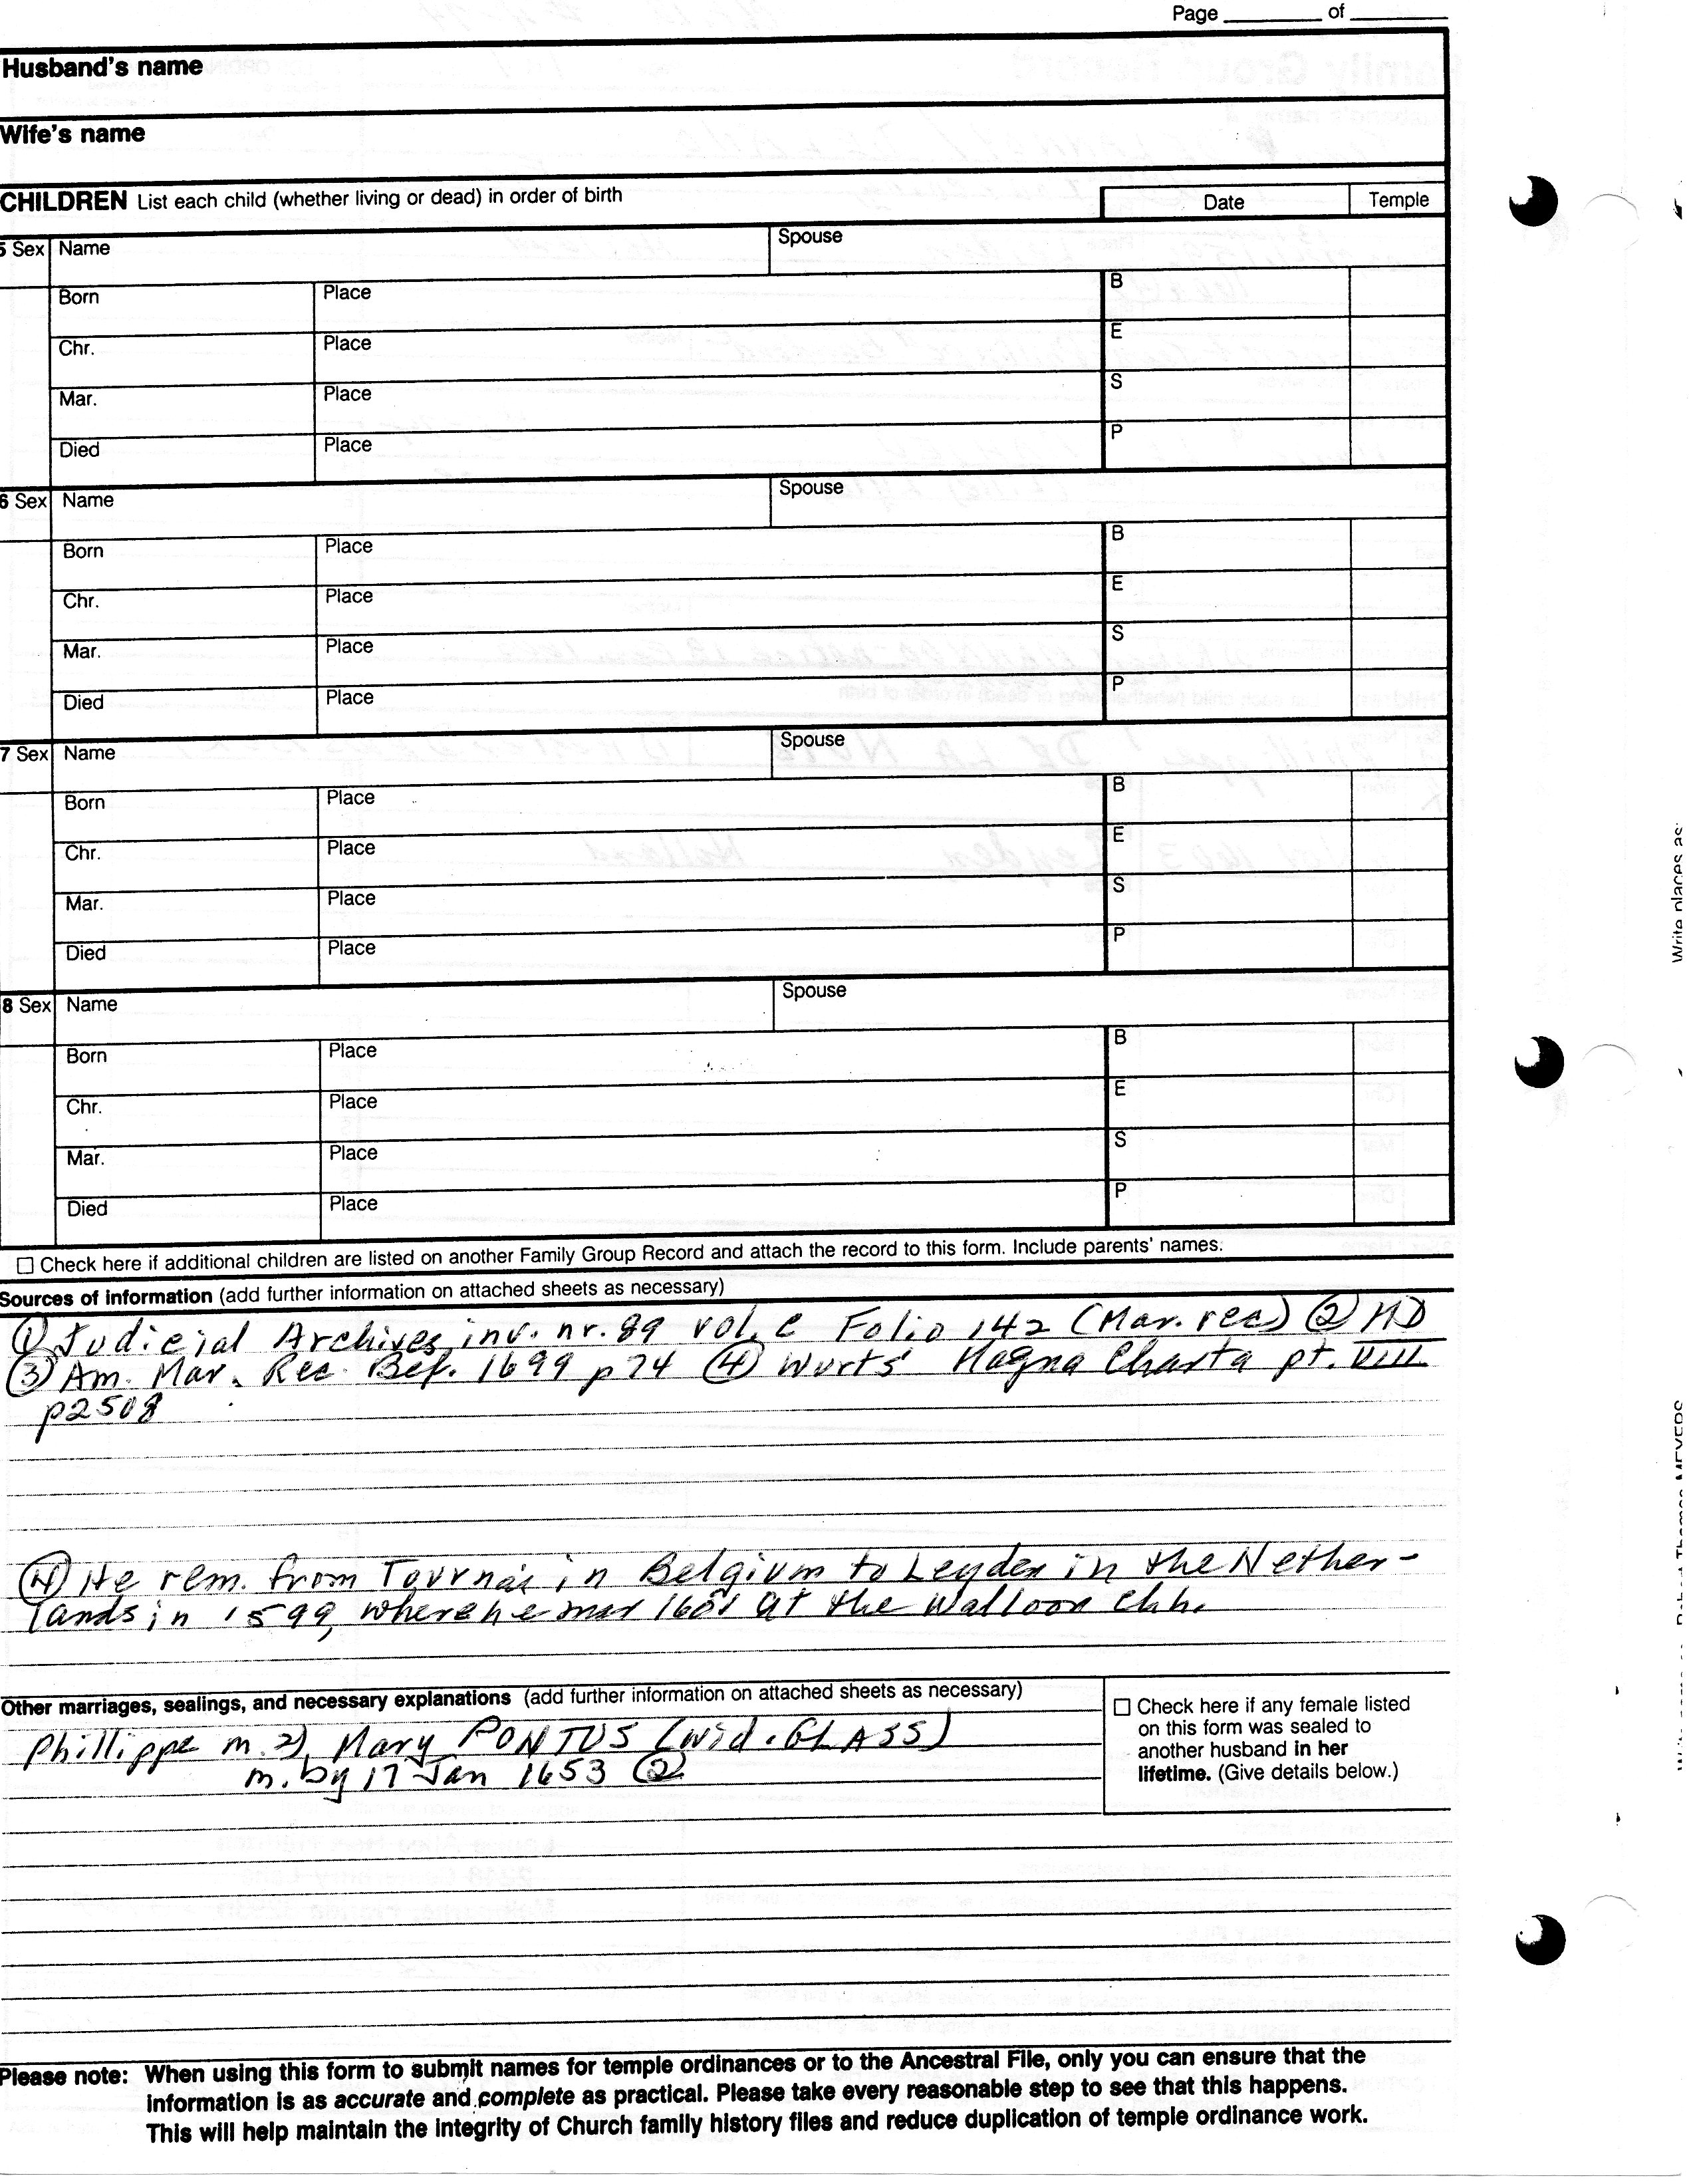 Page ________ of ________
Husband's name
Wife's name
CHILDREN List each child (whether living or dead) in order of birth Date Temple
5 Sex Name Spouse
Born Place B
Chr. Place E
Mar. Place S
Died Place P
6 Sex Name Spouse
Born Place B
Chr. Place E
Mar. Place S
Died Place P
7 Sex Name Spouse
Born Place B
Chr. Place E
Mar. Place S
Died Place P
8 Sex Name Spouse
Born Place B
Chr. Place E
Mar. Place S
Died Place P
☐ Check here if additional children are listed on another Family Group Record and attach the record to this form. Include parents' names.
Sources of information (add further information on attached sheets as necessary)
① Judicial Archives, inv. nr. 89 vol. C Folio 142 (Mar. rec) ② MD
③ Am. Mar. Rec. Bef. 1699 p74 ④ Wurts' Magna Charta pt. VIII
p2508
④ He rem. from Tournai in Belgium to Leyden in the Nether-
lands in 1599, where he mar 1601 at the Walloon Chh.
Other marriages, sealings, and necessary explanations (add further information on attached sheets as necessary)
Phillippe m. 2), Mary PONTUS (wid. GLASS)
m. by 17 Jan 1653 ②
☐ Check here if any female listed
on this form was sealed to
another husband in her
lifetime. (Give details below.)
Please note: When using this form to submit names for temple ordinances or to the Ancestral File, only you can ensure that the
information is as accurate and complete as practical. Please take every reasonable step to see that this happens.
This will help maintain the integrity of Church family history files and reduce duplication of temple ordinance work.
Write places as: